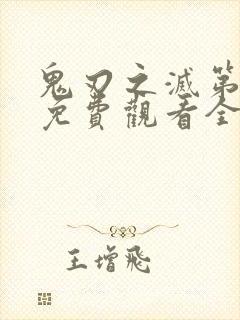 鬼刃之滅第
免費觀看全
王增飛